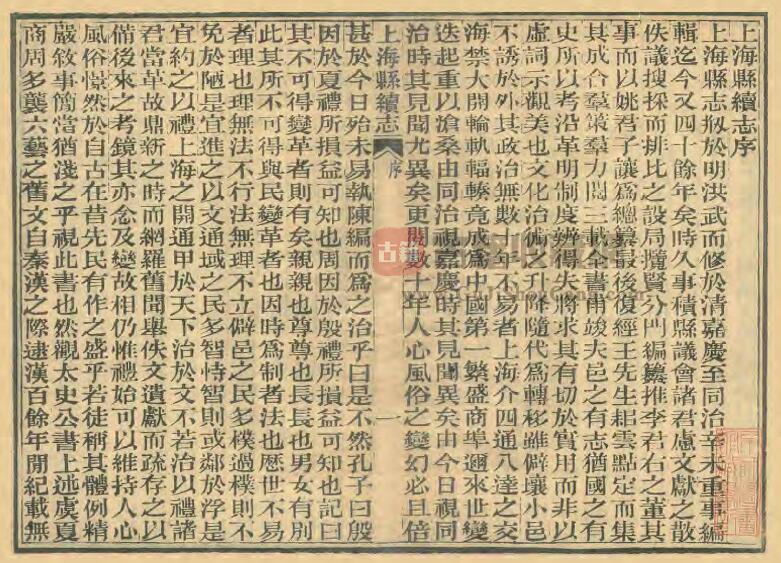 上海縣續志序
上海縣志刱於明洪武而修於清嘉慶至同治辛未重事編
輯迄今又四十餘年矣時久事積縣議會諸君慮文獻之散
佚議搜採而排比之設局攬賢分門編纂推李君右之董其
事而以姚君子讓爲總纂最後復經王先生耜雲點定而集
其成合羣策羣力閱三載全書甫竣夫邑之有志猶國之有
史所以考沿革明制度辨得失將求其有切於實用而非以
虛詞示觀美也文化治術以升降隨代爲轉移雖僻壤小邑
不誘於外其政治無數十年不易者上海介四通八達之交
海禁大開輪軌輻輳竟成爲中國第一繁盛商埠邇來世變
迭起重以滄桑由同治視嘉慶時其見聞異矣由今日視同
治時其見聞尤異矣更閱數十年人心風俗之變幻必且倍
上海縣續志 序 一
甚於今日殆未易執陳編而爲之治乎曰是不然孔子曰殷
因於夏禮所損益可知也周因於殷禮所損益可知也記曰
其不可得變革者則有矣親親也尊尊也長長也男女有別
此其所不可得與民變革者也因時爲制者法也歷世不易
者理也理無法不行法無理不立僻邑之民多樸過樸則不
免於陋是宜進之以文通域之民多智恃智則或鄰於浮是
宜約之以禮上海之開通甲於天下治於文不若治以禮諸
君當革故鼎新之時而網羅舊聞舉佚文遺獻而疏存之以
備後來之考鏡其亦念及變故相仍惟禮始可以維持人心
風俗憬然於自古在昔先民有作之盛乎若徒稱其體例精
嚴敘事簡當猶淺之乎視此書也然觀太史公書上述虞夏
商周多襲六藝之舊文自秦漢之際逮漢百餘年閒紀載無
古籍